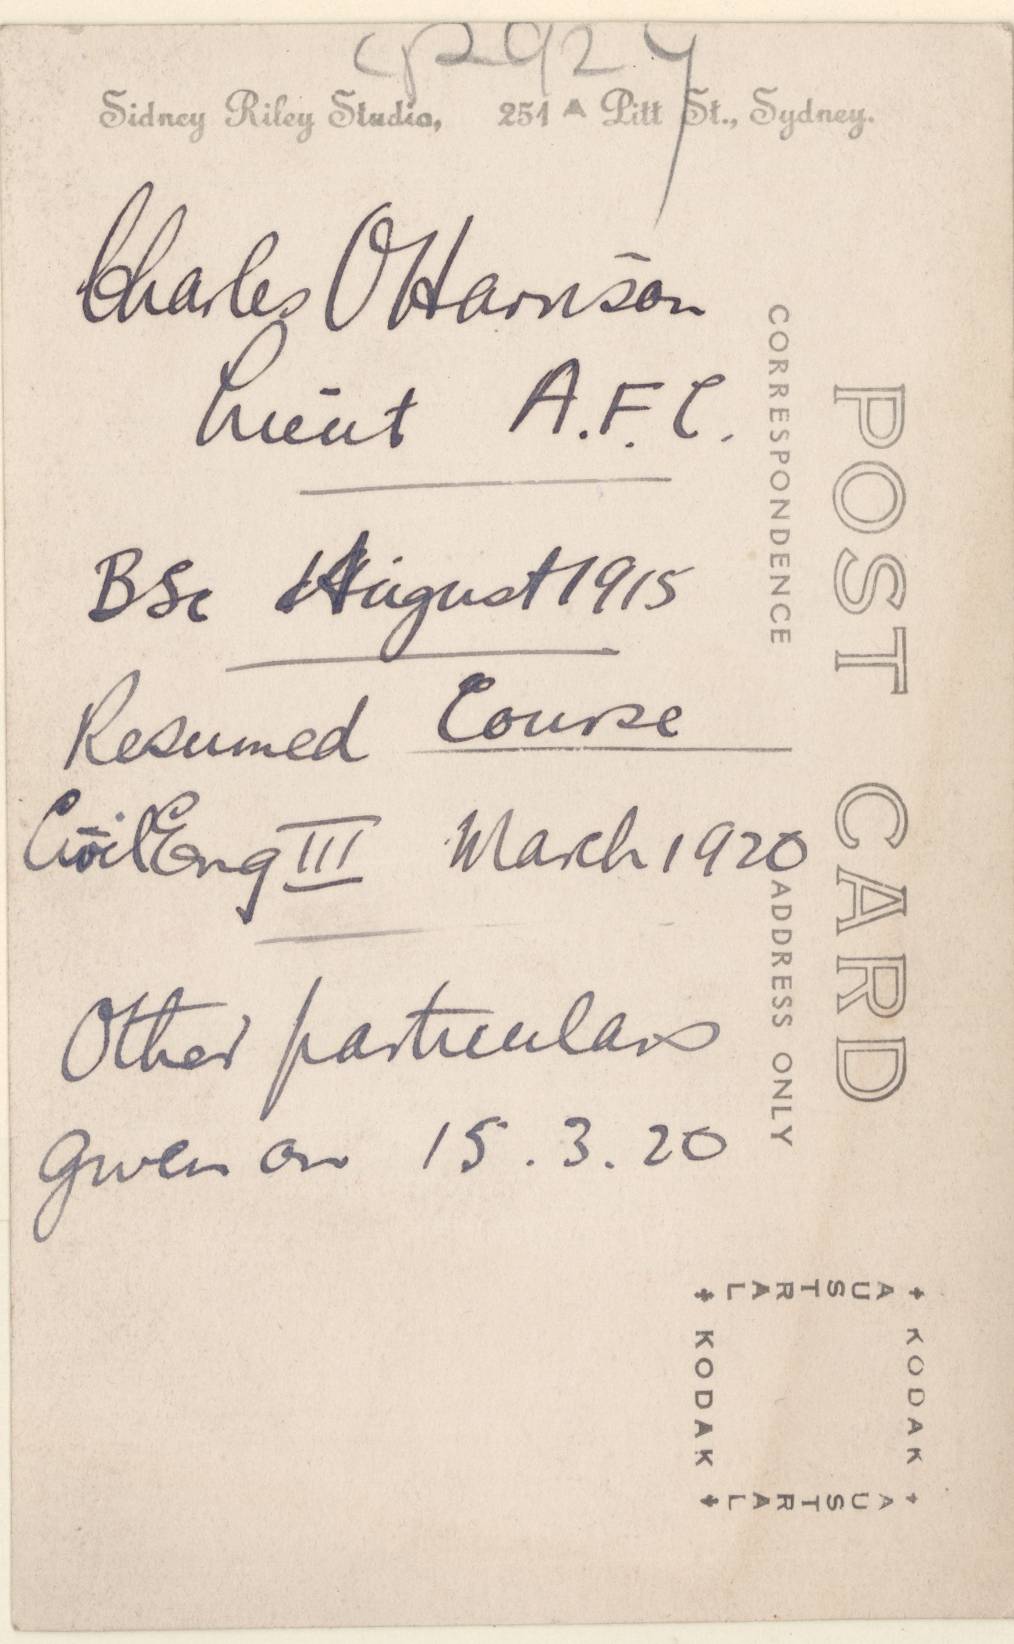 P924
Sidney Riley Studio, 251 A Pitt St., Sydney.
Charles O Harrison
Lieut A.F.C.
BSc August 1915
Resumed Course
Civil Eng III March 1920
Other particulars
given on 15.3.20
POST CARD
CORRESPONDENCE
ADDRESS ONLY
AUSTRAL
KODAK
KODAK
AUSTRAL